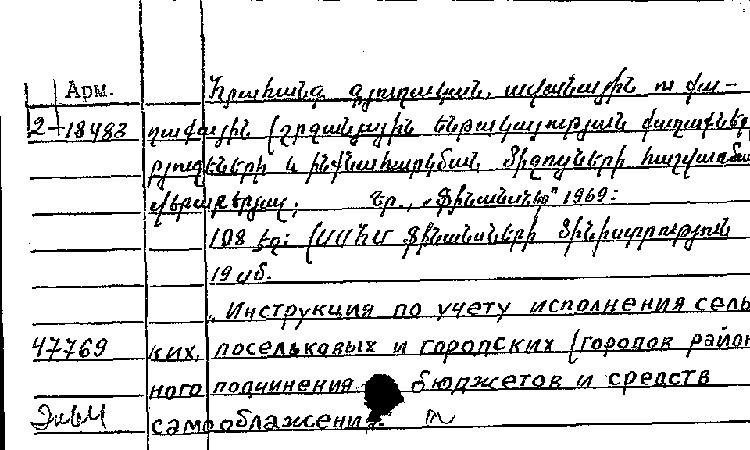 Арм. Հրահանգ գյուղական, ավանային ու քա-
2-18483 ղաքային (շրջանային ենթակայության քաղաքներ
բյուջեների և ինքնահարկման միջոցների հաշվառման
վերաբերյալ. Եր., „Ֆինանսներ" 1969:
108 էջ: (ՍՍՀՄ Ֆինանսների Մինիստրություն
19 սմ.
„Инструкция по учету исполнения сель
47769 ких, поселковых и городских (городов район
ного подчинения бюджетов и средств
самооблажения.